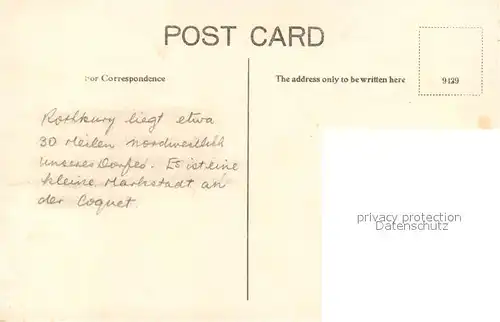 POST CARD
For Correspondence
The address only to be written here
9429
Rothbury liegt etwa
30 Meilen nordwestlich
unseres Dorfes. Es ist eine
kleine Marktstadt an
der Coquet.
privacy protection
Datenschutz